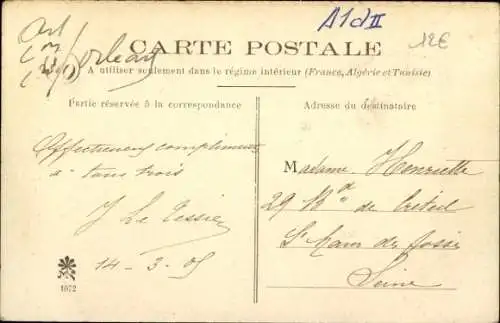 A1d II
12€
Art
Orleans
CARTE POSTALE
A utiliser seulement dans le régime intérieur (France, Algérie et Tunisie)
Partie réservée à la correspondance
Affectueux compliments
à tous trois
J Le Tessier
14-3-05
1072
Adresse du destinataire
Madame Henriette
29 Bd de Créteil
St Maur des fossés
Seine